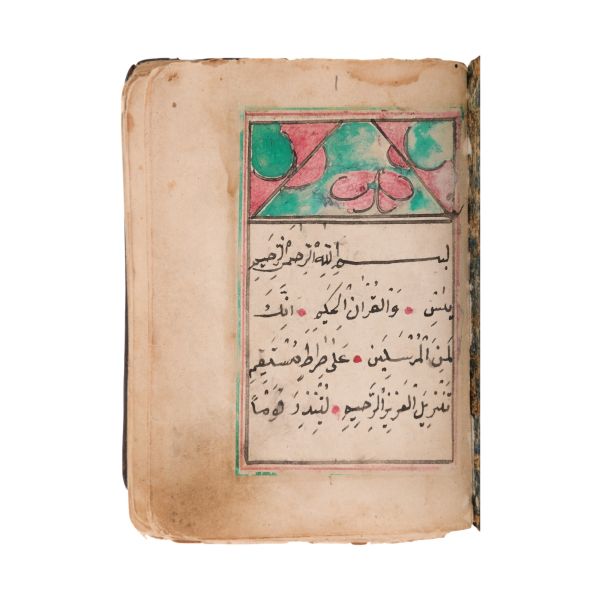 ١
بسم الله الرحمن الرحيم
يٰسٓ • وَالْقُرْاٰنِ الْحَكِيمِ • اِنَّكَ
لَمِنَ الْمُرْسَلِينَ • عَلٰى صِرَاطٍ مُسْتَقِيمٍ
تَنْزِيلَ الْعَزِيزِ الرَّحِيمِ • لِتُنْذِرَ قَوْمًا